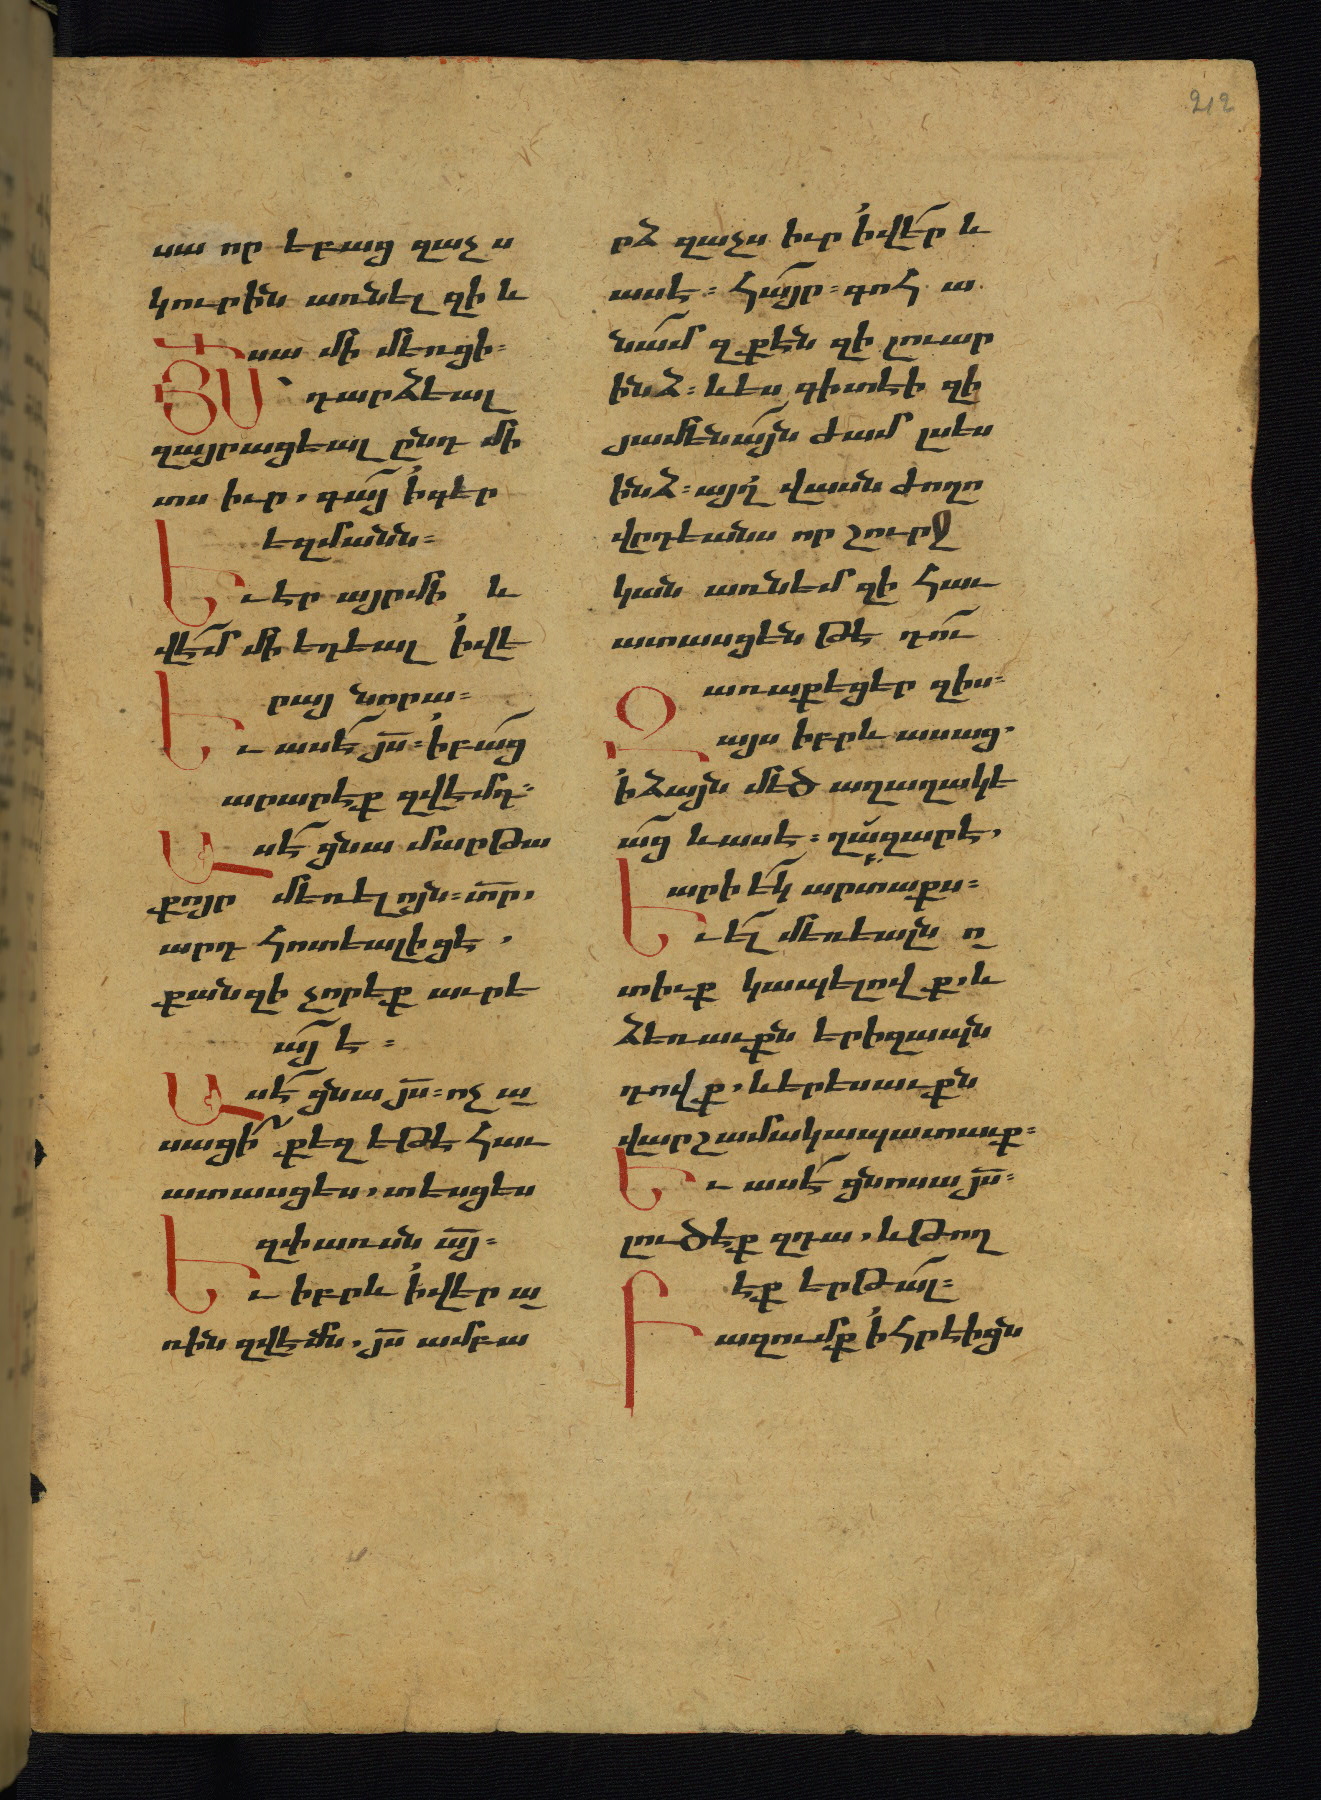 212
սա որ եբաց զաչս
կուրին առնել զի և
սա մի մեռցի։
ՅՍ՝ դարձեալ
զայրացեալ ընդ մի
տս իւր, գա՛յ ՛ի գեր
եզմանն։
Եւ էր այր մի և
վէ՛մ մի եդեալ ՛ի վե
րայ նորա։
Եւ ասէ՛ յս̅։ ի բա՛ց
արարէք զվէմդ։
Ասէ՛ ցնա մարթա
քոյր մեռելոյն։ տ̅ր,
արդ հոտեալ իցէ,
քանզի չորեք աւրե
ա՛յ է։
Ասէ՛ ցնա յս̅։ ոչ ա
սացի՞ քեզ եթէ հաւ
ատասցես, տեսցես
զփառսն ա̅յ։
Եւ իբրև ՛ի վեր ա
ռին զվէմն, յս̅ ամբա
րձ զաչս իւր ՛ի վե՛ր և
ասէ։ հա՛յր։ գոհ ա
նա՛մ զքէն զի լուար
ինձ։ և ես գիտէի զի
յամենա՛յն ժամ լսես
ինձ։ այղ վասն ժողո
վրդեանս որ շուրջ
կան առնեմ զի հաւ
ատասցեն թէ դո՛ւ
առաքեցեր զիս։
Զայս իբրև ասաց,
՛ի ձայն մեծ աղաղակե
ա՛ց և ասէ։ ղա՛զարէ,
արի ե՛կ արտաքս։
Եւ ե՛լ մեռեալն ո
տիւք կապելովք, և
ձեռաւքն երիզապն
դովք, և երեսաւքն
վարշամակապատաւք։
Եւ ասէ՛ ցնոսա յս̅։
լուծէք զդա, և թող
էք երթա՛լ։
Բազումք ՛ի հրէիցն